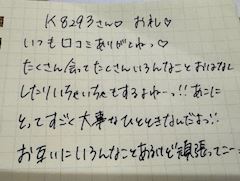 K8293さん♡ お礼♡
いつも口コミありがとねっ♡
たくさん会ってたくさんいろんなことおはなし
したりいちゃいちゃもするよねーっ!! あこに
とってすごく大事なひとときなんだよっ!
お互いにいろんなことあるけど頑張ってこー